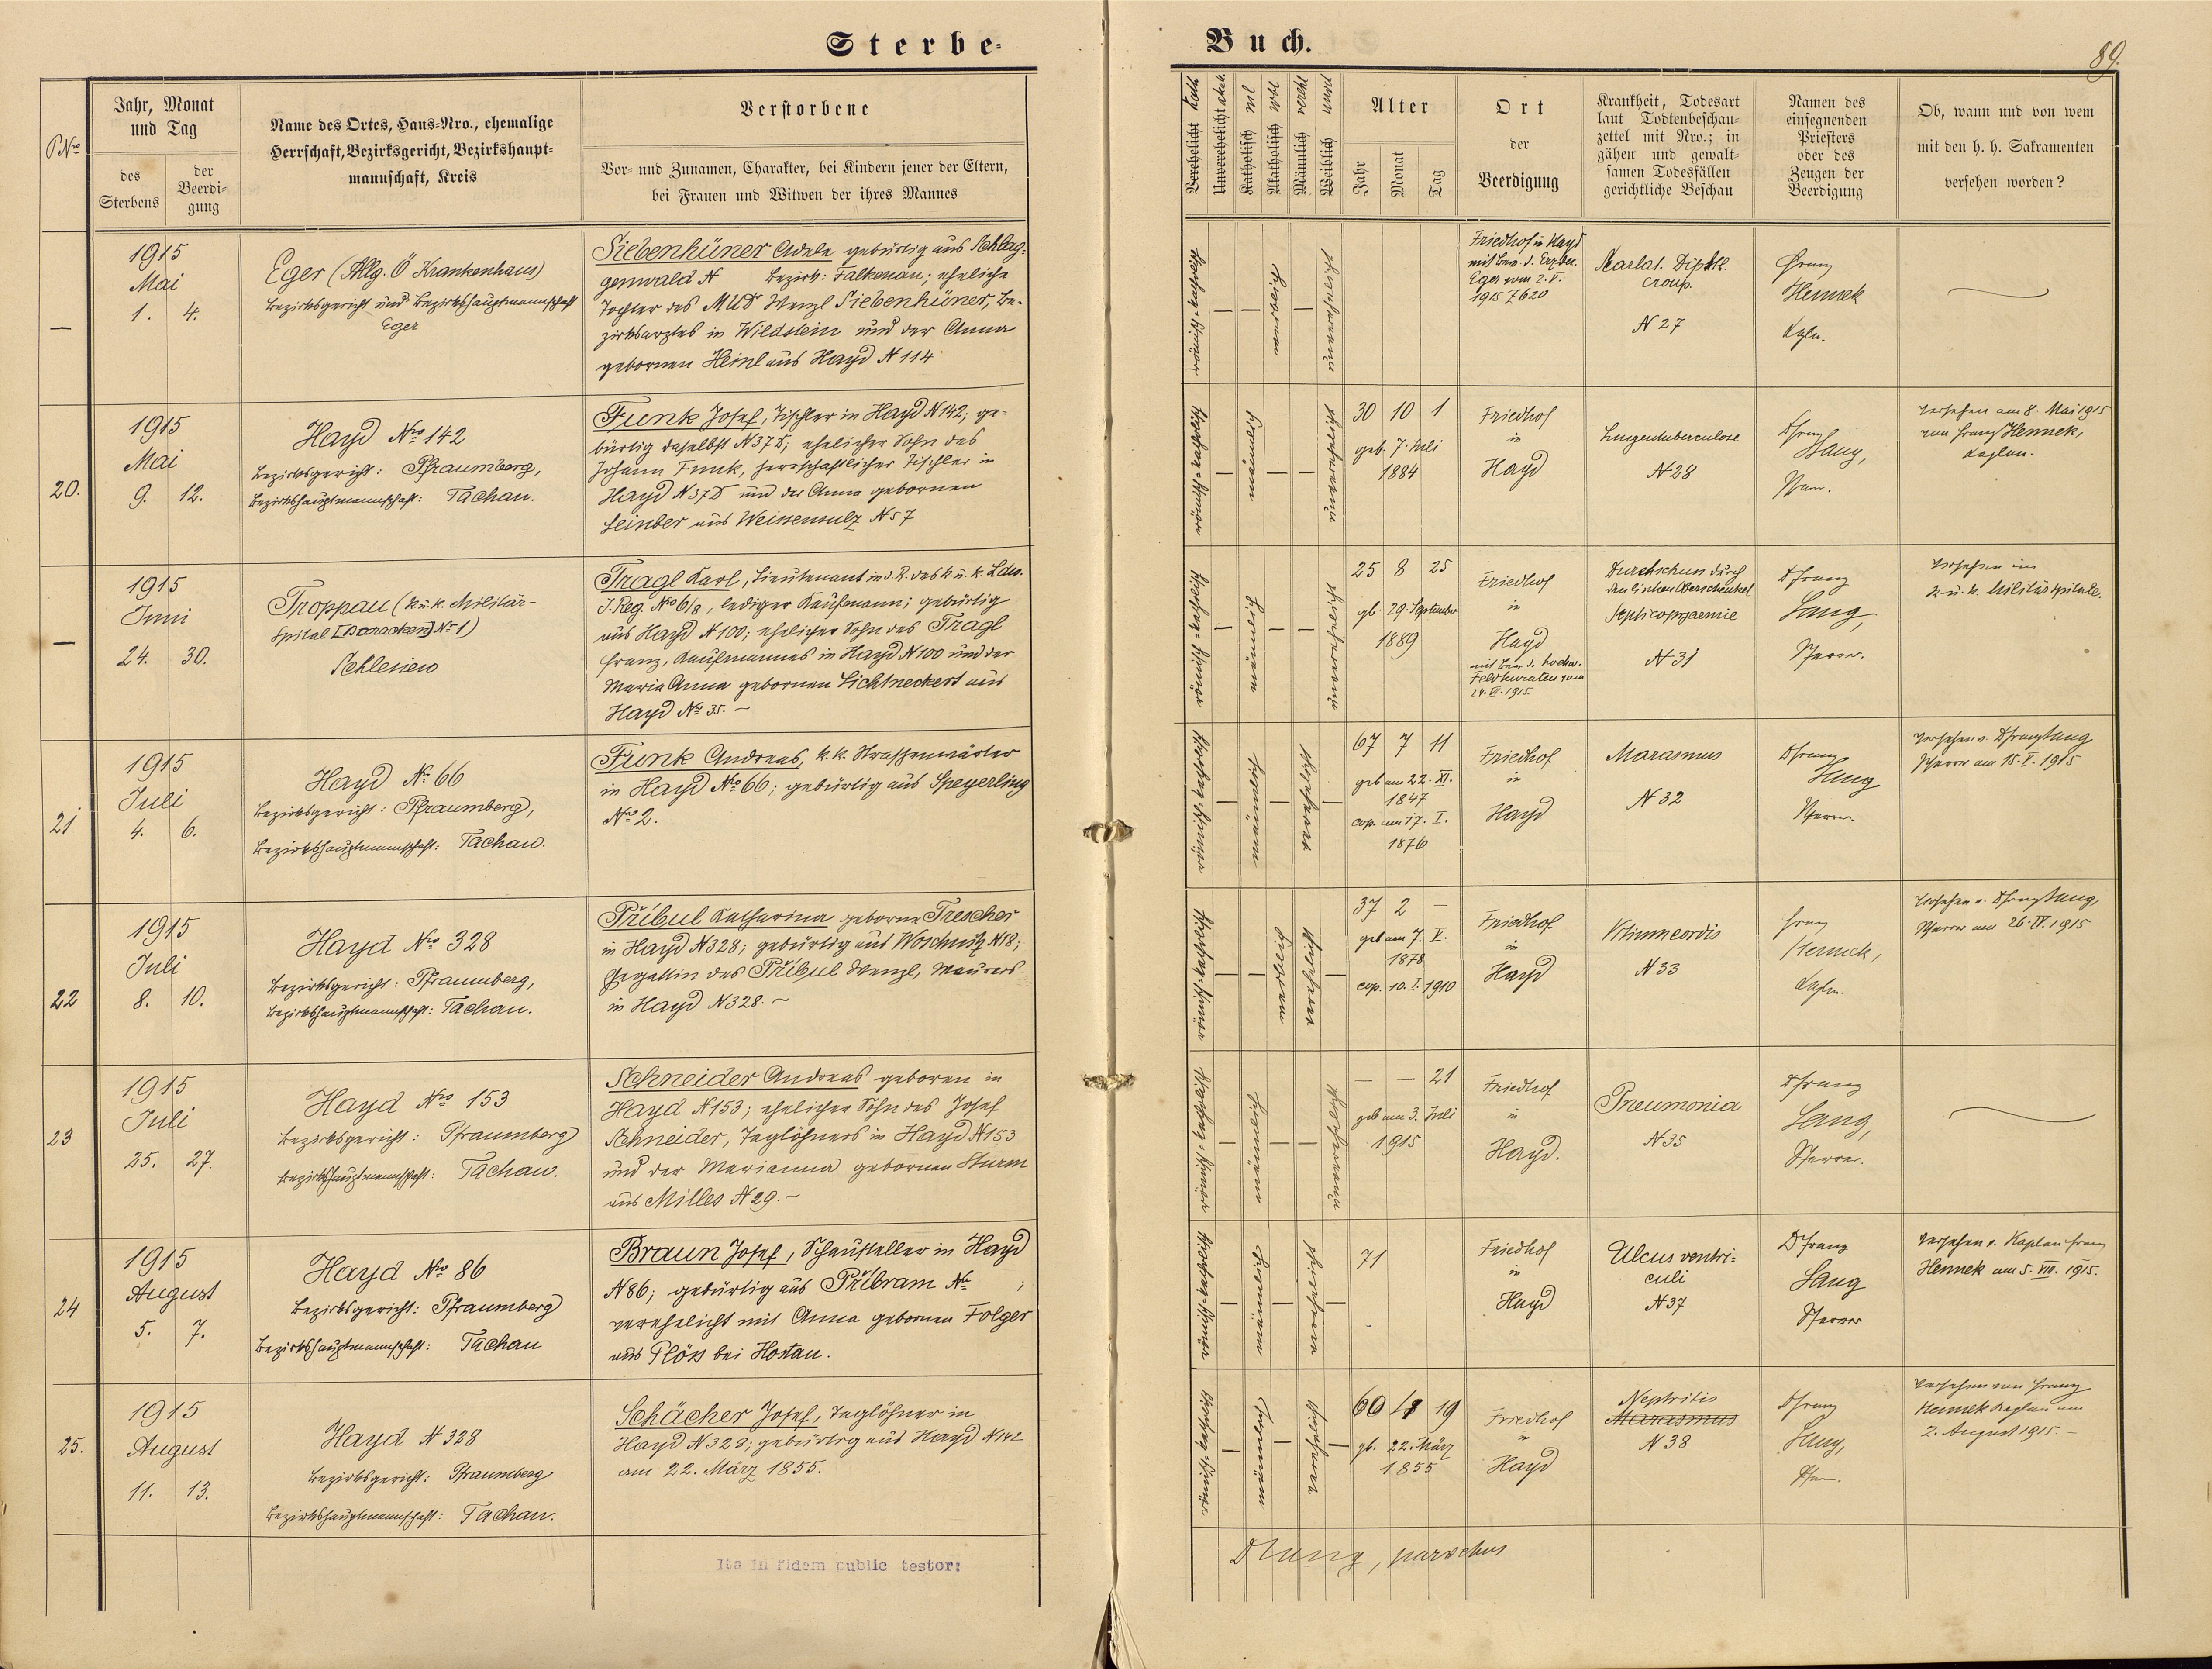 Sterbe-
Buch.
89.
PNro
Jahr, Monat
und Tag
des
Sterbens
der
Beerdi-
gung
Name des Ortes, Haus-Nro., ehemalige
Herrschaft, Bezirksgericht, Bezirkshaupt-
mannschaft, Kreis
Verstorbene
Vor- und Zunamen, Charakter, bei Kindern jener der Eltern,
bei Frauen und Witwen der ihres Mannes
Verehelicht
Unverehelicht
Katholisch
Akatholisch
Männlich
Weiblich
Alter
Jahr
Monat
Tag
Ort
der
Beerdigung
Krankheit, Todesart
laut Todtenbeschau-
zettel mit Nro.; in
gähen und gewalt-
samen Todesfällen
gerichtliche Beschau
Namen des
einsegnenden
Priesters
oder des
Zeugen der
Beerdigung
Ob, wann und von wem
mit den h. h. Sakramenten
versehen worden?
—
1915
Mai
1. 4.
Eger (Allg. Ö Krankenhaus)
Bezirksgericht und Bezirkshauptmannschaft
Eger
Siebenhüner Adele gebürtig aus Schlag-
genwald N Bezirk: Falkenau; eheliche
Tochter des MUDr Wenzl Siebenhüner, Be-
zirksarztes in Wildstein und der Anna
gebornen Heinl aus Hayd N 114
römisch-katholisch
weiblich
unverehelicht
Friedhof in Hayd
mit Bew. d. Bezbeh.
Eger vom 2. V.
1915 7620
Scarlat. Diphth.
Croup.
N 27
Franz
Hennek
Kapln.
20.
1915
Mai
9. 12.
Hayd Nro 142
Bezirksgericht: Pfraumberg,
Bezirkshauptmannschaft: Tachau.
Funk Josef, Tischler in Hayd N 142; ge-
bürtig daselbst N 37 D; ehelicher Sohn des
Johann Funk, herrschaftlicher Tischler in
Hayd N 37 D und der Anna gebornen
aus Weissensulz N 57
römisch-katholisch
männlich
unverehelicht
30 10 1
geb. 7. Juli
1884
Friedhof
in
Hayd
Lungentuberculose
N 28
Franz
Lang,
Pfarr.
Versehen am 8. Mai 1915
von Franz Hennek,
Kaplan.
—
1915
Juni
24. 30.
Troppau (k. u. k. Militär-
Spital [Baracken] No 1)
Schlesien
Tragl Karl, Lieutenant in d. R. des k. u. k. Ldw.
I. Reg. Nro 6/8, lediger Kaufmann; gebürtig
aus Hayd N 100; ehelicher Sohn des Tragl
Franz, Kaufmannes in Hayd N 100 und der
Maria Anna gebornen Lichtneckert aus
Hayd No 35. —
römisch-katholisch
männlich
unverehelicht
25 8 25
gb. 29. September
1889
Friedhof
in
Hayd
mit Bew. d. hochw.
Feldkuraten vom
24. VI. 1915
Durchschuss durch
den linken Oberschenkel
Septicopyaemie
N 31
Franz
Lang,
Pfarrer.
Versehen im
k. u. k. Militärspitale.
21
1915
Juli
4. 6.
Hayd No 66
Bezirksgericht: Pfraumberg,
Bezirkshauptmannschaft: Tachau.
Funk Andreas, k. k. Straßenwärter
in Hayd No 66; gebürtig aus Speyerling
No 2.
römisch-katholisch
männlich
verehelicht
67 7 11
geb am 22. XI.
1847
cop. am 17. I.
1876
Friedhof
in
Hayd
Marasmus
N 32
Franz
Lang
Pfarrer.
Versehen v. Franz Lang
Pfarrer am 15. V. 1915
22
1915
Juli
8. 10.
Hayd Nro 328
Bezirksgericht: Pfraumberg,
Bezirkshauptmannschaft: Tachau.
Přibul Katharina geborne Trescher
in Hayd N 328; gebürtig aus Woschnitz N 18;
Ehegattin des Přibul Wenzl, Maurers
in Hayd N 328. —
römisch-katholisch
weiblich
verehelicht
37 2 —
geb am 7. V.
1878
cop. 10. I. 1910
Friedhof
in
Hayd
Vitium cordis
N 33
Franz
Hennek,
Kapln.
Versehen v. Franz Lang,
Pfarrer am 26. VI. 1915
23
1915
Juli
25. 27.
Hayd Nro 153
Bezirksgericht: Pfraumberg
Bezirkshauptmannschaft: Tachau.
Schneider Andreas geboren in
Hayd N 153; ehelicher Sohn des Josef
Schneider, Taglöhners in Hayd N 153
und der Marianna gebornen Sturm
aus Milles N 29. —
römisch-katholisch
männlich
unverehelicht
— — 21
geb am 3. Juli
1915
Friedhof
in
Hayd.
Pneumonia
N 35
Franz
Lang,
Pfarrer.
24
1915
August
5. 7.
Hayd Nro 86
Bezirksgericht: Pfraumberg
Bezirkshauptmannschaft: Tachau
Braun Josef, Schausteller in Hayd
N 86; gebürtig aus Přibram No ;
verehelicht mit Anna gebornen Folger
aus Plöss bei Hostau.
römisch-katholisch
männlich
verehelicht
71
Friedhof
in
Hayd
Ulcus ventri-
culi
N 37
Franz
Lang
Pfarrer
Versehen v. Kaplan Franz
Hennek am 5. VIII. 1915.
25.
1915
August
11. 13.
Hayd N 328
Bezirksgericht: Pfraumberg
Bezirkshauptmannschaft: Tachau.
Schächer Josef, Taglöhner in
Hayd N 328; gebürtig aus Hayd N 142
am 22. März 1855.
römisch-katholisch
männlich
verehelicht
60 4 19
gb. 22. März
1855
Friedhof
in
Hayd
Nephritis
Marasmus
N 38
Franz
Lang,
Pfarr.
Versehen von Franz
Hennek Kaplan am
2. August 1915. —
Ita in fidem public testor:
Lang, parochus